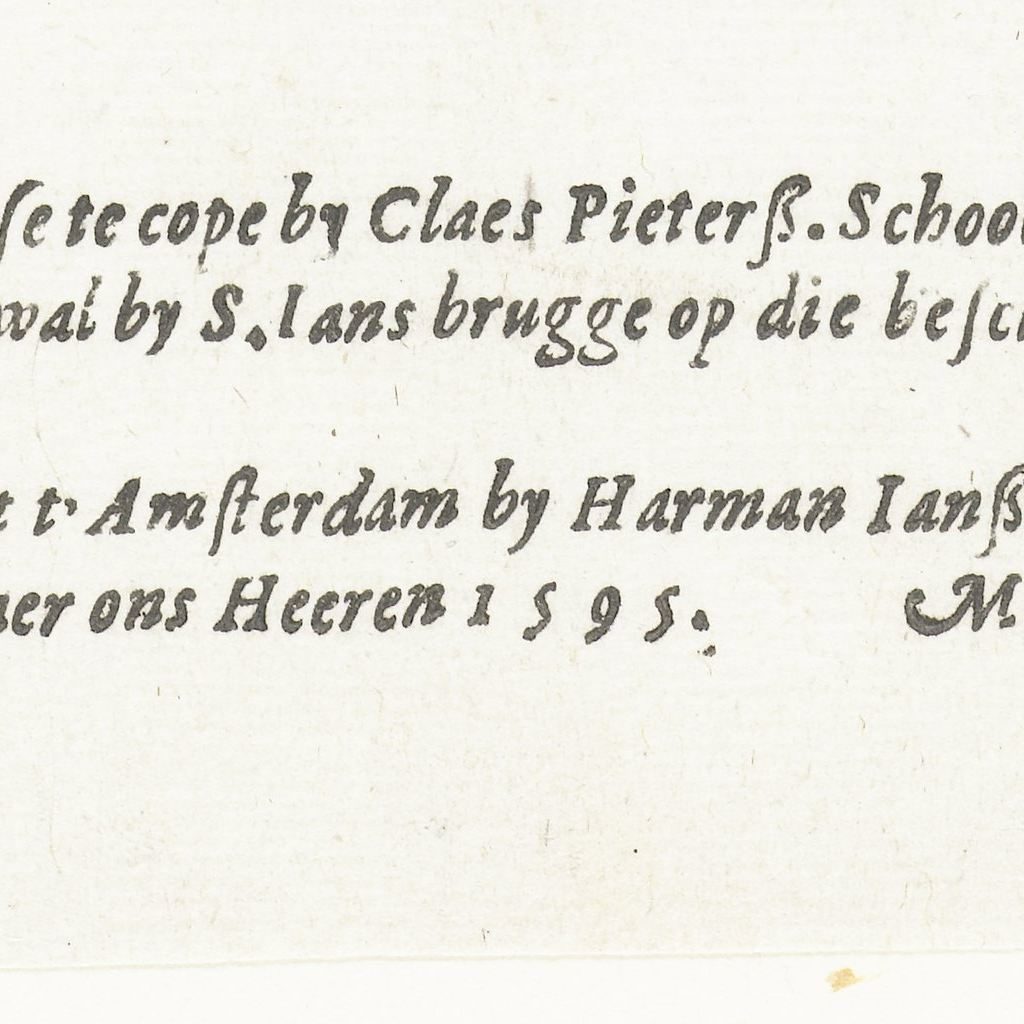 ſe te cope by Claes Pieterſz. Schoo
wal by S. Ians brugge op die beſc
t t' Amſterdam by Harman Ianſz
aer ons Heeren 1595. M